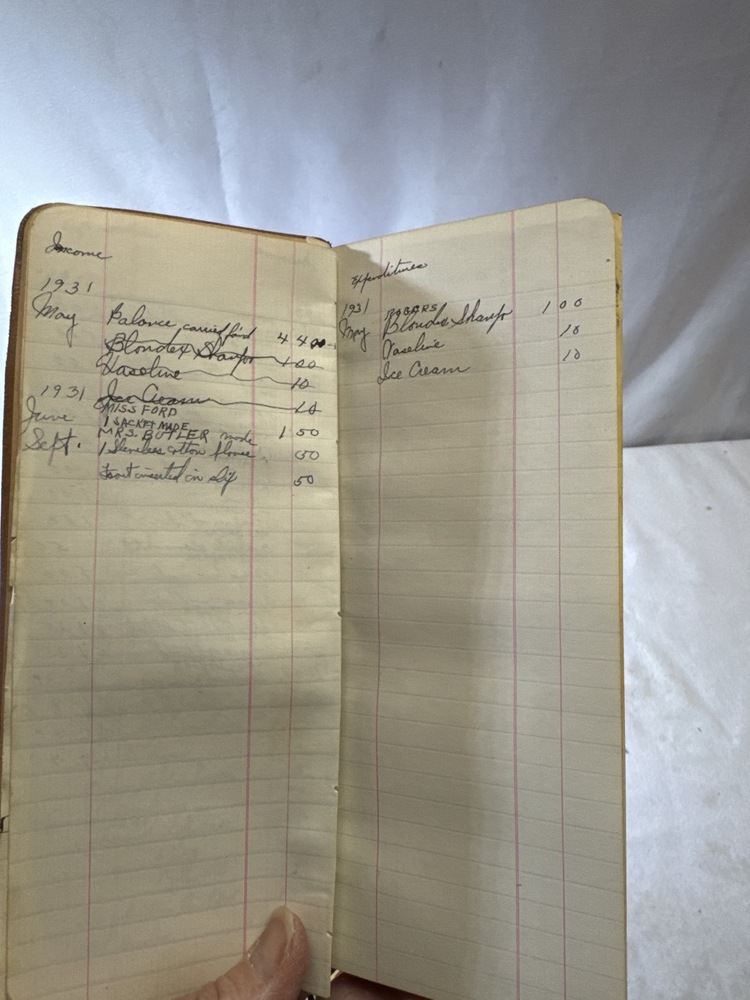 Income
1931
May Balance carried for'd 4 40
Blondex Shampo 1 00
Vaseline 10
1931 Ice Cream 10
June MISS FORD
1 JACKET MADE 1 50
Sept. MRS. BUTLER made
1 Sleeveless cotton 50
inserted in slip 50
Expenditures
1931 ROGERS
May Blondex Shampo 1 00
Vaseline 10
Ice Cream 10